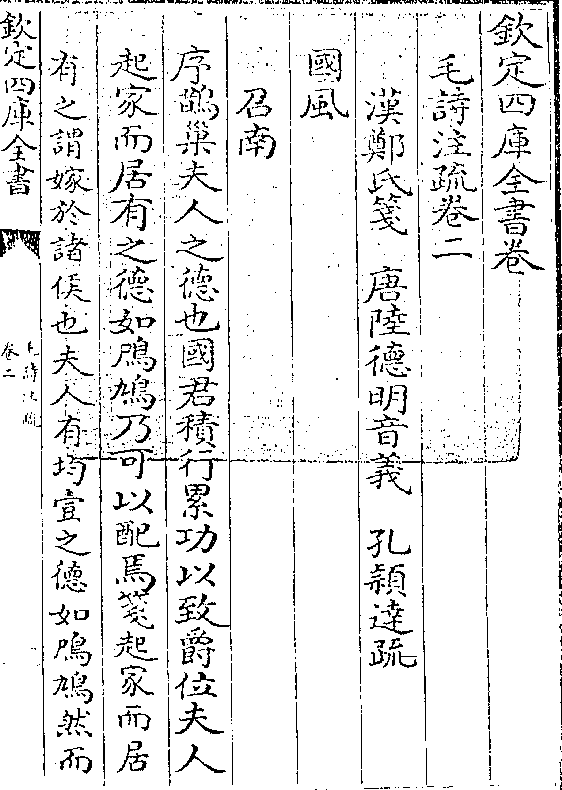 欽定四庫全書卷
毛詩注疏卷二
漢鄭氏箋　唐陸德明音義　孔穎達疏
國風
召南
序鵲巢夫人之德也國君積行累功以致爵位夫人
起家而居有之德如鳲鳩乃可以配焉箋起家而居
有之謂嫁於諸侯也夫人有均壹之德如鳲鳩然而
欽定四庫全書
毛詩注疏
卷二